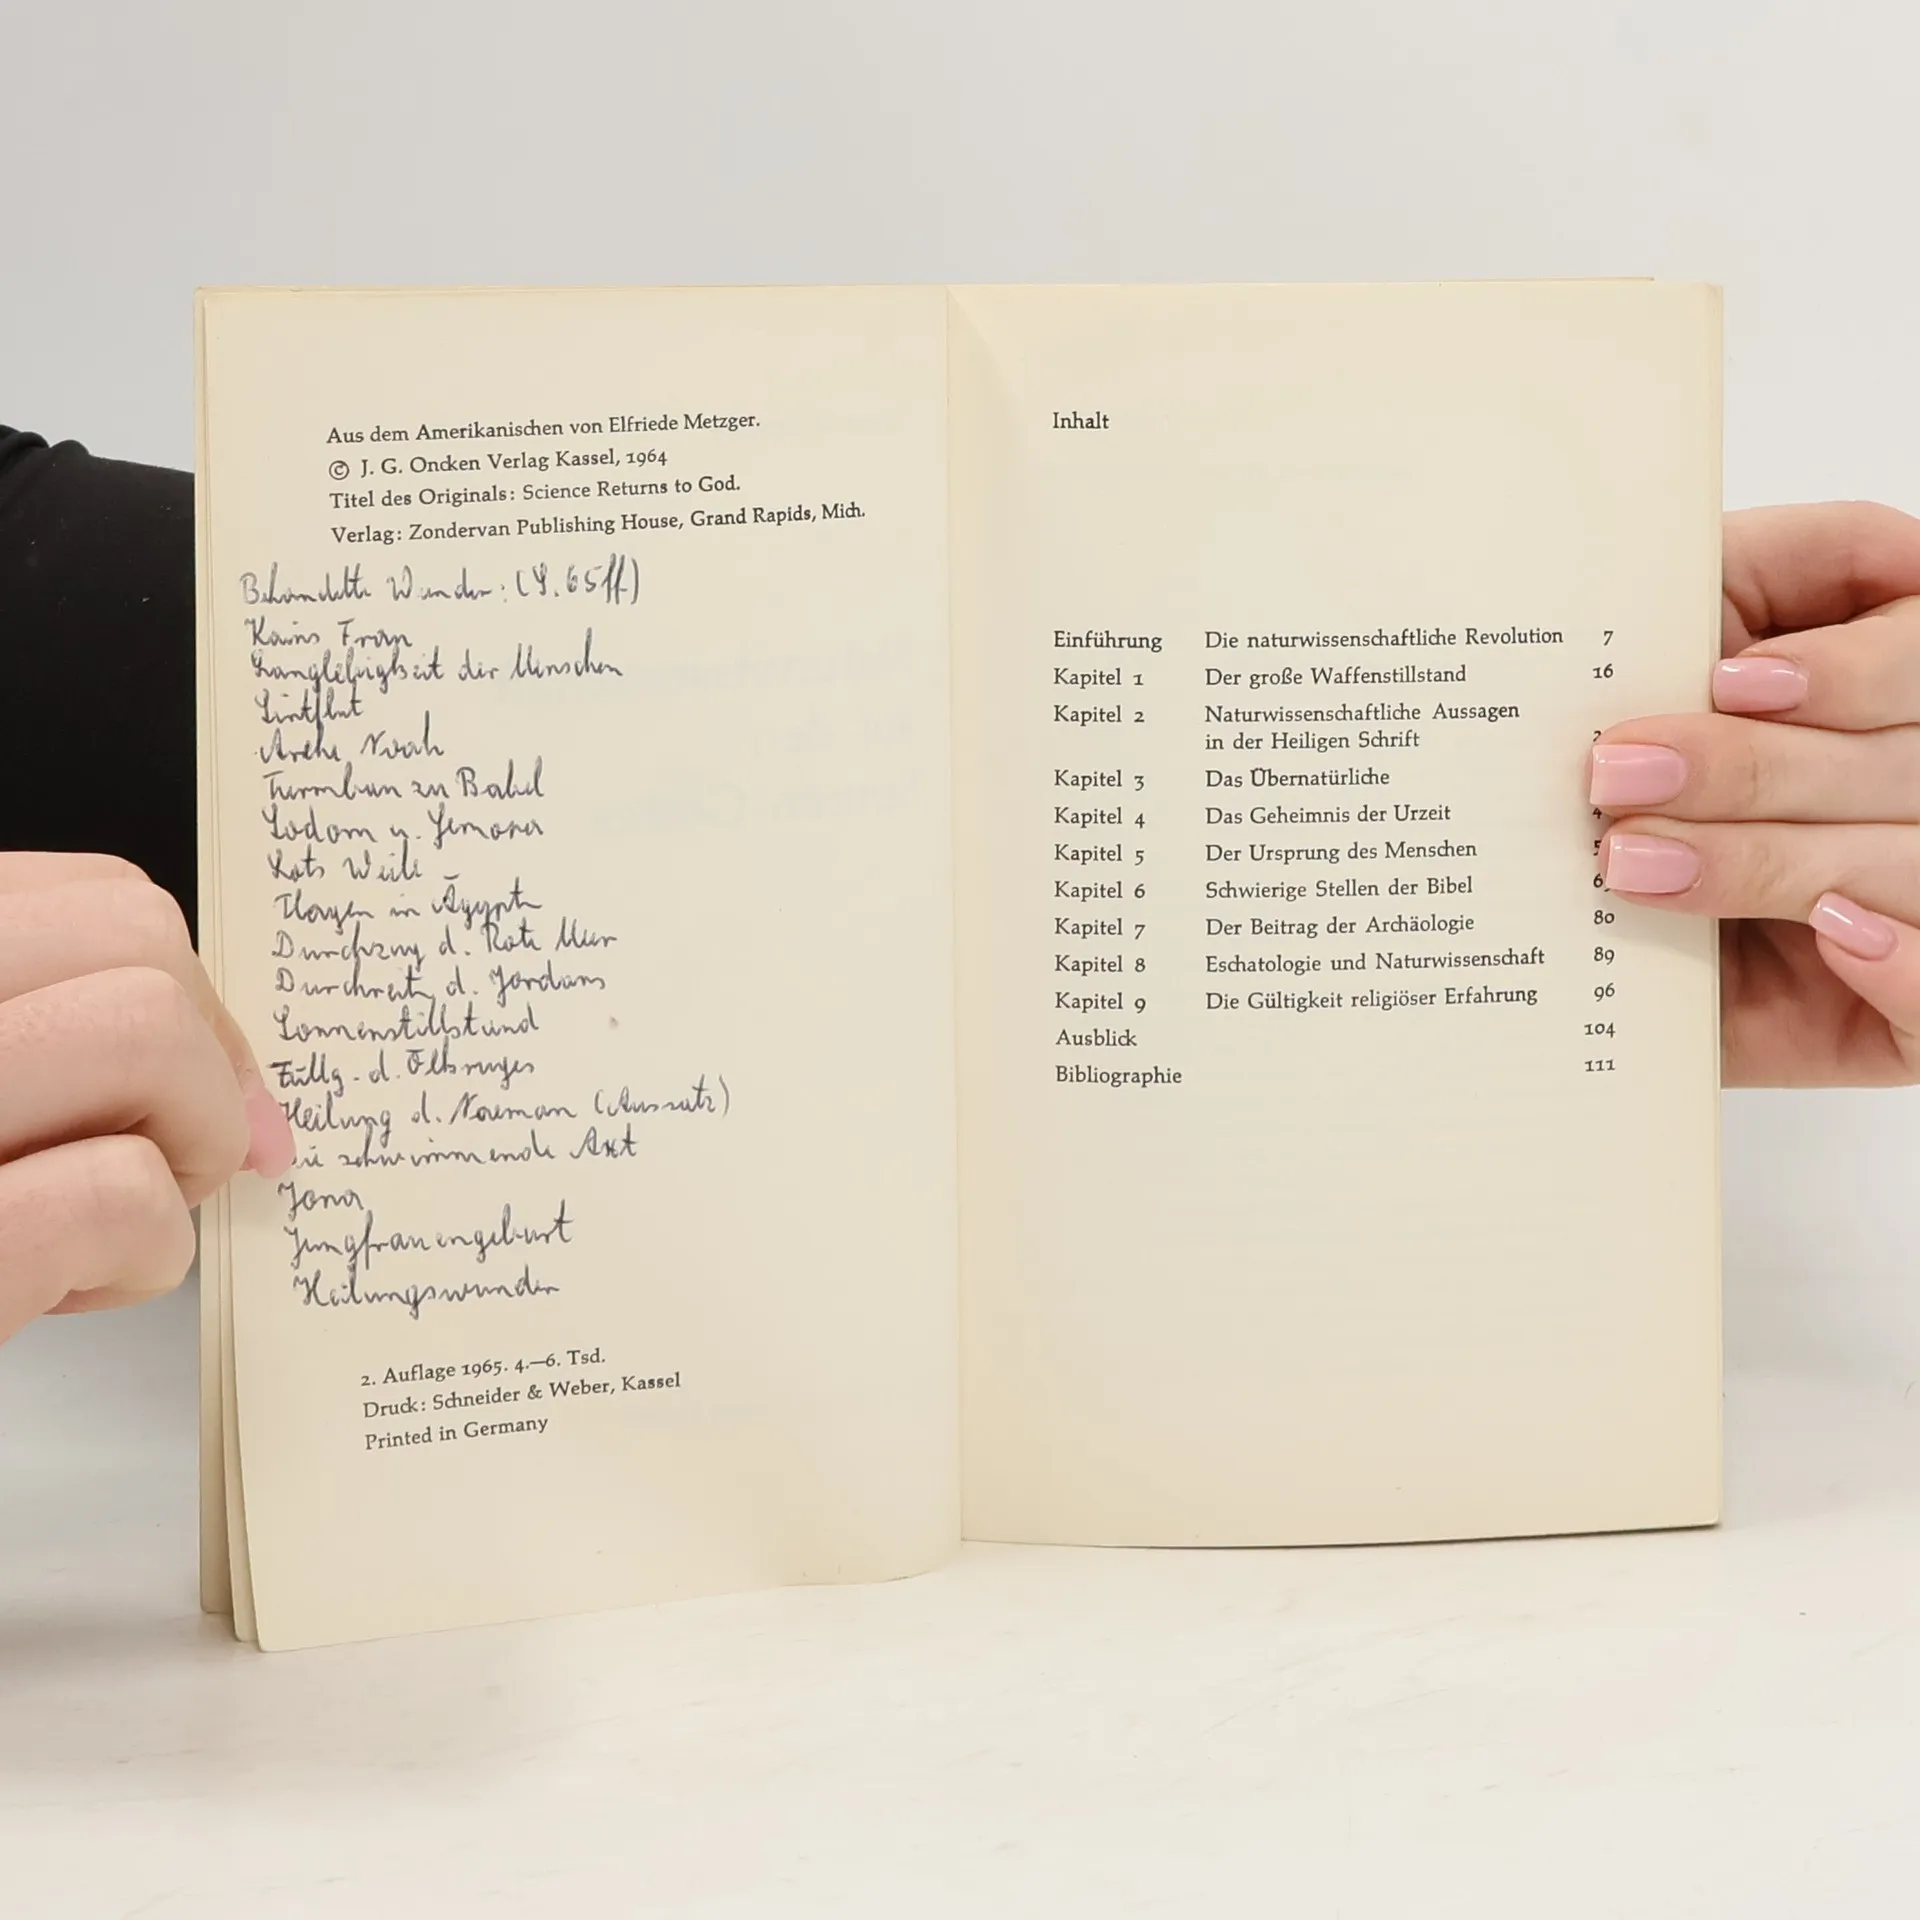 Aus dem Amerikanischen von Elfriede Metzger.
© J. G. Oncken Verlag Kassel, 1964
Titel des Originals: Science Returns to God.
Verlag: Zondervan Publishing House, Grand Rapids, Mich.
Behandelte Wunder: (S. 65ff)
Kains Frau
Langlebigkeit der Menschen
Sintflut
Arche Noah
Turmbau zu Babel
Sodom u. Gomora
Lots Weib
Plagen in Ägypten
Durchzug d. Rote Meer
d. Jordans
Sonnenstillstand
Füllg. d. Ölkruges
Heilung d. Naeman (Aussatz)
schwimmende Axt
Jona
Jungfrauengeburt
Heilungswunder
2. Auflage 1965. 4.—6. Tsd.
Druck: Schneider & Weber, Kassel
Printed in Germany
Inhalt
Einführung Die naturwissenschaftliche Revolution 7
Kapitel 1 Der große Waffenstillstand 16
Kapitel 2 Naturwissenschaftliche Aussagen
in der Heiligen Schrift
Kapitel 3 Das Übernatürliche
Kapitel 4 Das Geheimnis der Urzeit
Kapitel 5 Der Ursprung des Menschen
Kapitel 6 Schwierige Stellen der Bibel
Kapitel 7 Der Beitrag der Archäologie 80
Kapitel 8 Eschatologie und Naturwissenschaft 89
Kapitel 9 Die Gültigkeit religiöser Erfahrung 96
Ausblick 104
Bibliographie 111